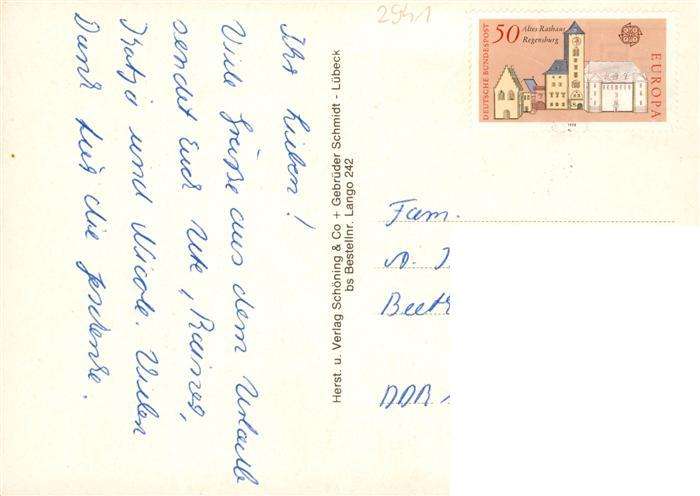 2941
DEUTSCHE BUNDESPOST
50
Altes Rathaus
Regensburg
EUROPA
1978
Ihr Lieben!
Viele Grüße aus dem Urlaub
sendet Euch Ute, Rainer,
Katja und Nicole. Vielen
Dank für die Geschenke.
Herst. u. Verlag Schöning & Co + Gebrüder Schmidt - Lübeck
bs Bestellnr. Lango 242
Fam.
A.
Beeth
DDR